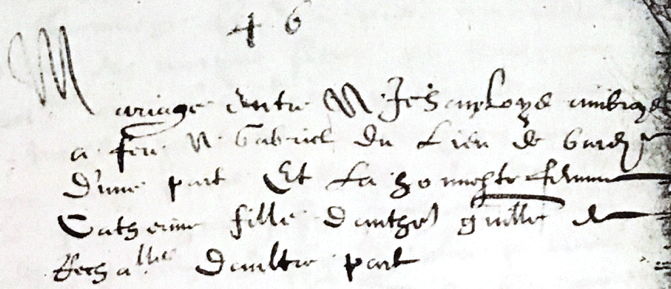 46
Mariage entre M Jehan Loys ambroys
a feu M Gabriel du lieu de
d'une part Et la honneste femme
Catherine fille d'anthe guille de
daultre part